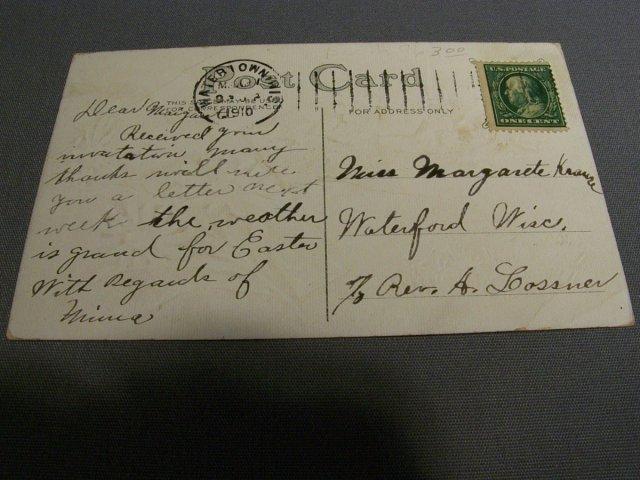 3.00
Post Card
WATERTOWN, WIS.
1910
U.S. POSTAGE
ONE CENT
THIS SPACE MAY BE USED
FOR CORRESPONDENCE
FOR ADDRESS ONLY
Dear
Received your
invitation, many
thanks will write
you a letter next
week the weather
is grand for Easter
With Regards of
Minna
Miss Margarete Krause
Waterford Wisc.
℅ Rev. H. Lossner